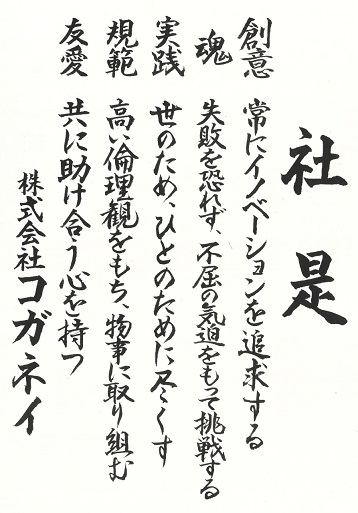 社是
創意 常にイノベーションを追求する
魂 失敗を恐れず、不屈の気迫をもって挑戦する
実践 世のため、ひとのために尽くす
規範 高い倫理観をもち、物事に取り組む
友愛 共に助け合う心を持つ
株式会社コガネイ